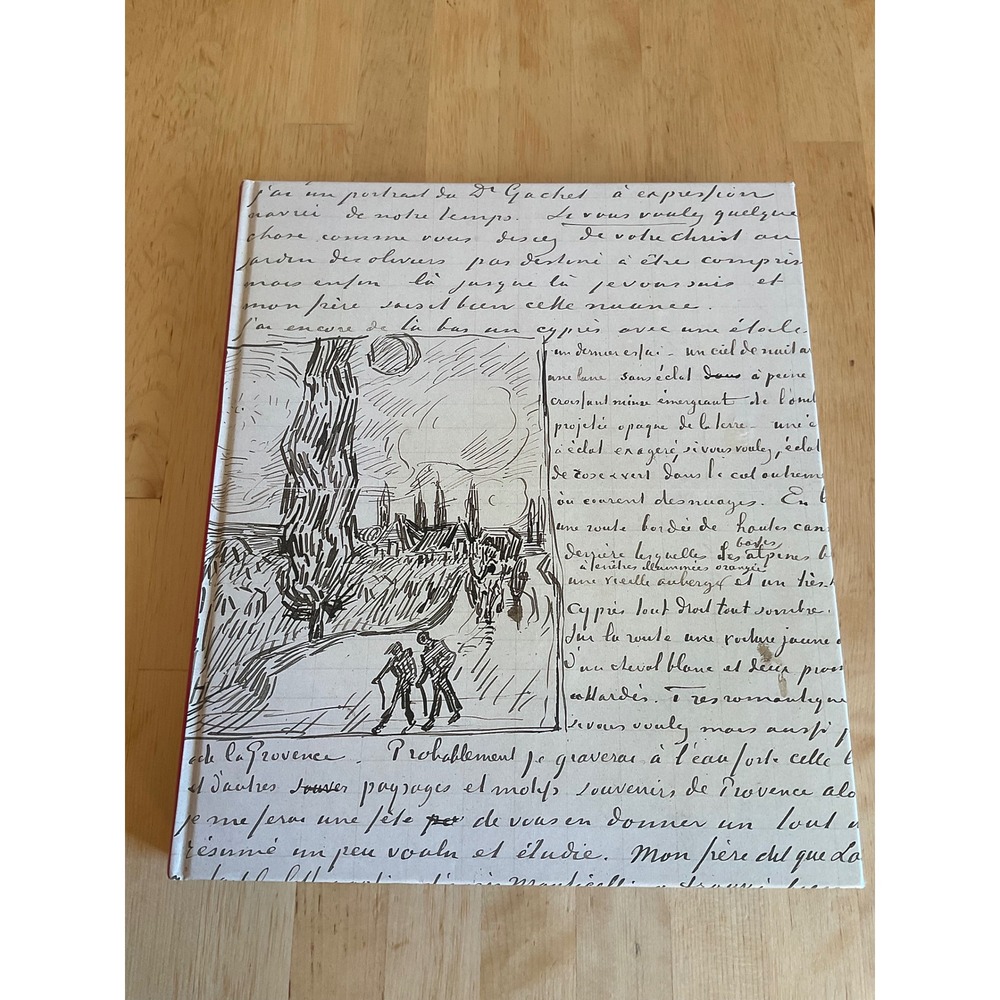 j'ai un portrait du Dr Gachet à expression
navrée de notre temps. Si vous voulez quelque
chose comme vous disiez de votre christ au
jardin des oliviers pas destiné à être compris
mais enfin là jusque là je vous suis et
mon frère saisit bien cette nuance.
j'ai encore de là bas un cyprès avec une étoile
un dernier essai - un ciel de nuit a
une lune sans éclat dans à peine
croissant mince émergeant de l'omb
projetée opaque de la terre - une é
à éclat exagéré, si vous voulez, éclat
de rose & vert dans le ciel outrem
où courent des nuages. En b
une route bordée de hautes can
derrière lesquelles les basses alpines b
à fenêtres illuminées orangée
une vieille auberge et un très
cyprès tout droit tout sombre.
Sur la route une voiture jaune a
d'un cheval blanc et deux prom
attardés. Très romantique
si vous voulez mais aussi j
de la Provence. Probablement je graverai à l'eau forte celle l
et d'autres souver paysages et motifs souvenirs de Provence alo
je me ferai une fête de vous en donner un tout a
résumé un peu voulu et étudié. Mon frère dit que La